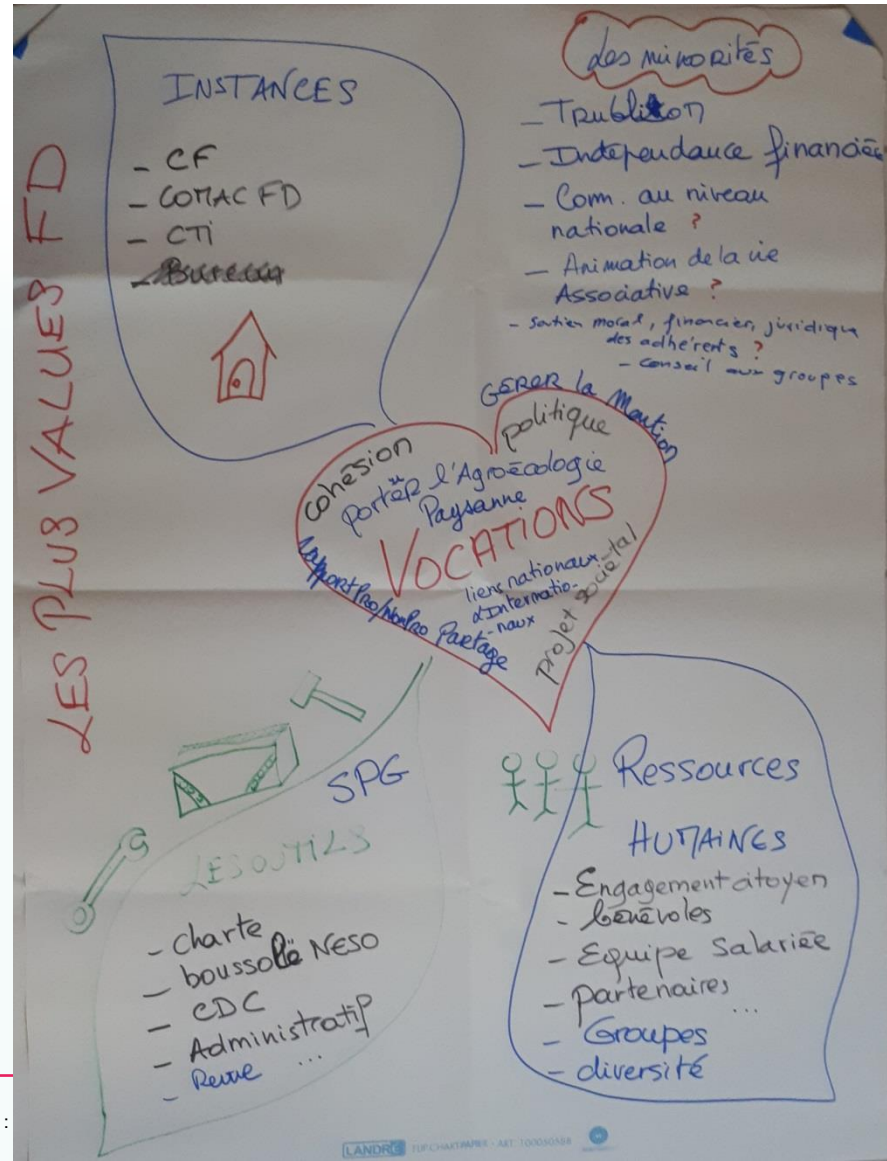 LES PLUS VALUES FD
INSTANCES
- CF
- COMAC FD
- CTi
- Bureau
des minorités
- Trublion
- Indépendance financière
- Com. au niveau
nationale ?
- Animation de la vie
Associative ?
- Soutien moral, financier, juridique
des adhérents ?
- conseil aux groupes
GERER la Mention
cohésion
politique
porter l'Agroécologie
Paysanne
VOCATIONS
rapport Pro/NonPro
liens nationaux
d'Internatio-
-naux
Partage
projet sociétal
SPG
LES OUTILS
- charte
- boussole NESO
- CDC
- Administratif
- Revue ...
Ressources
HUMAINES
- Engagement citoyen
- bénévoles
- Equipe Salariée
- partenaires
...
- Groupes
- diversité
LANDRÉ
: